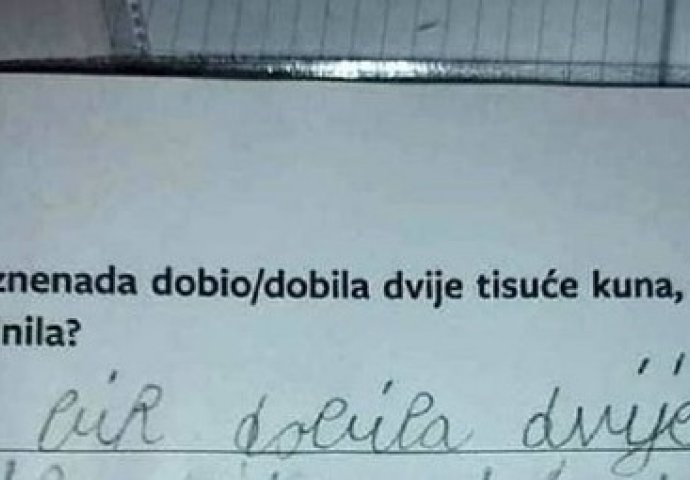 znenada dobio/dobila dvije tisuće kuna,
nila?
bih dobila dvije